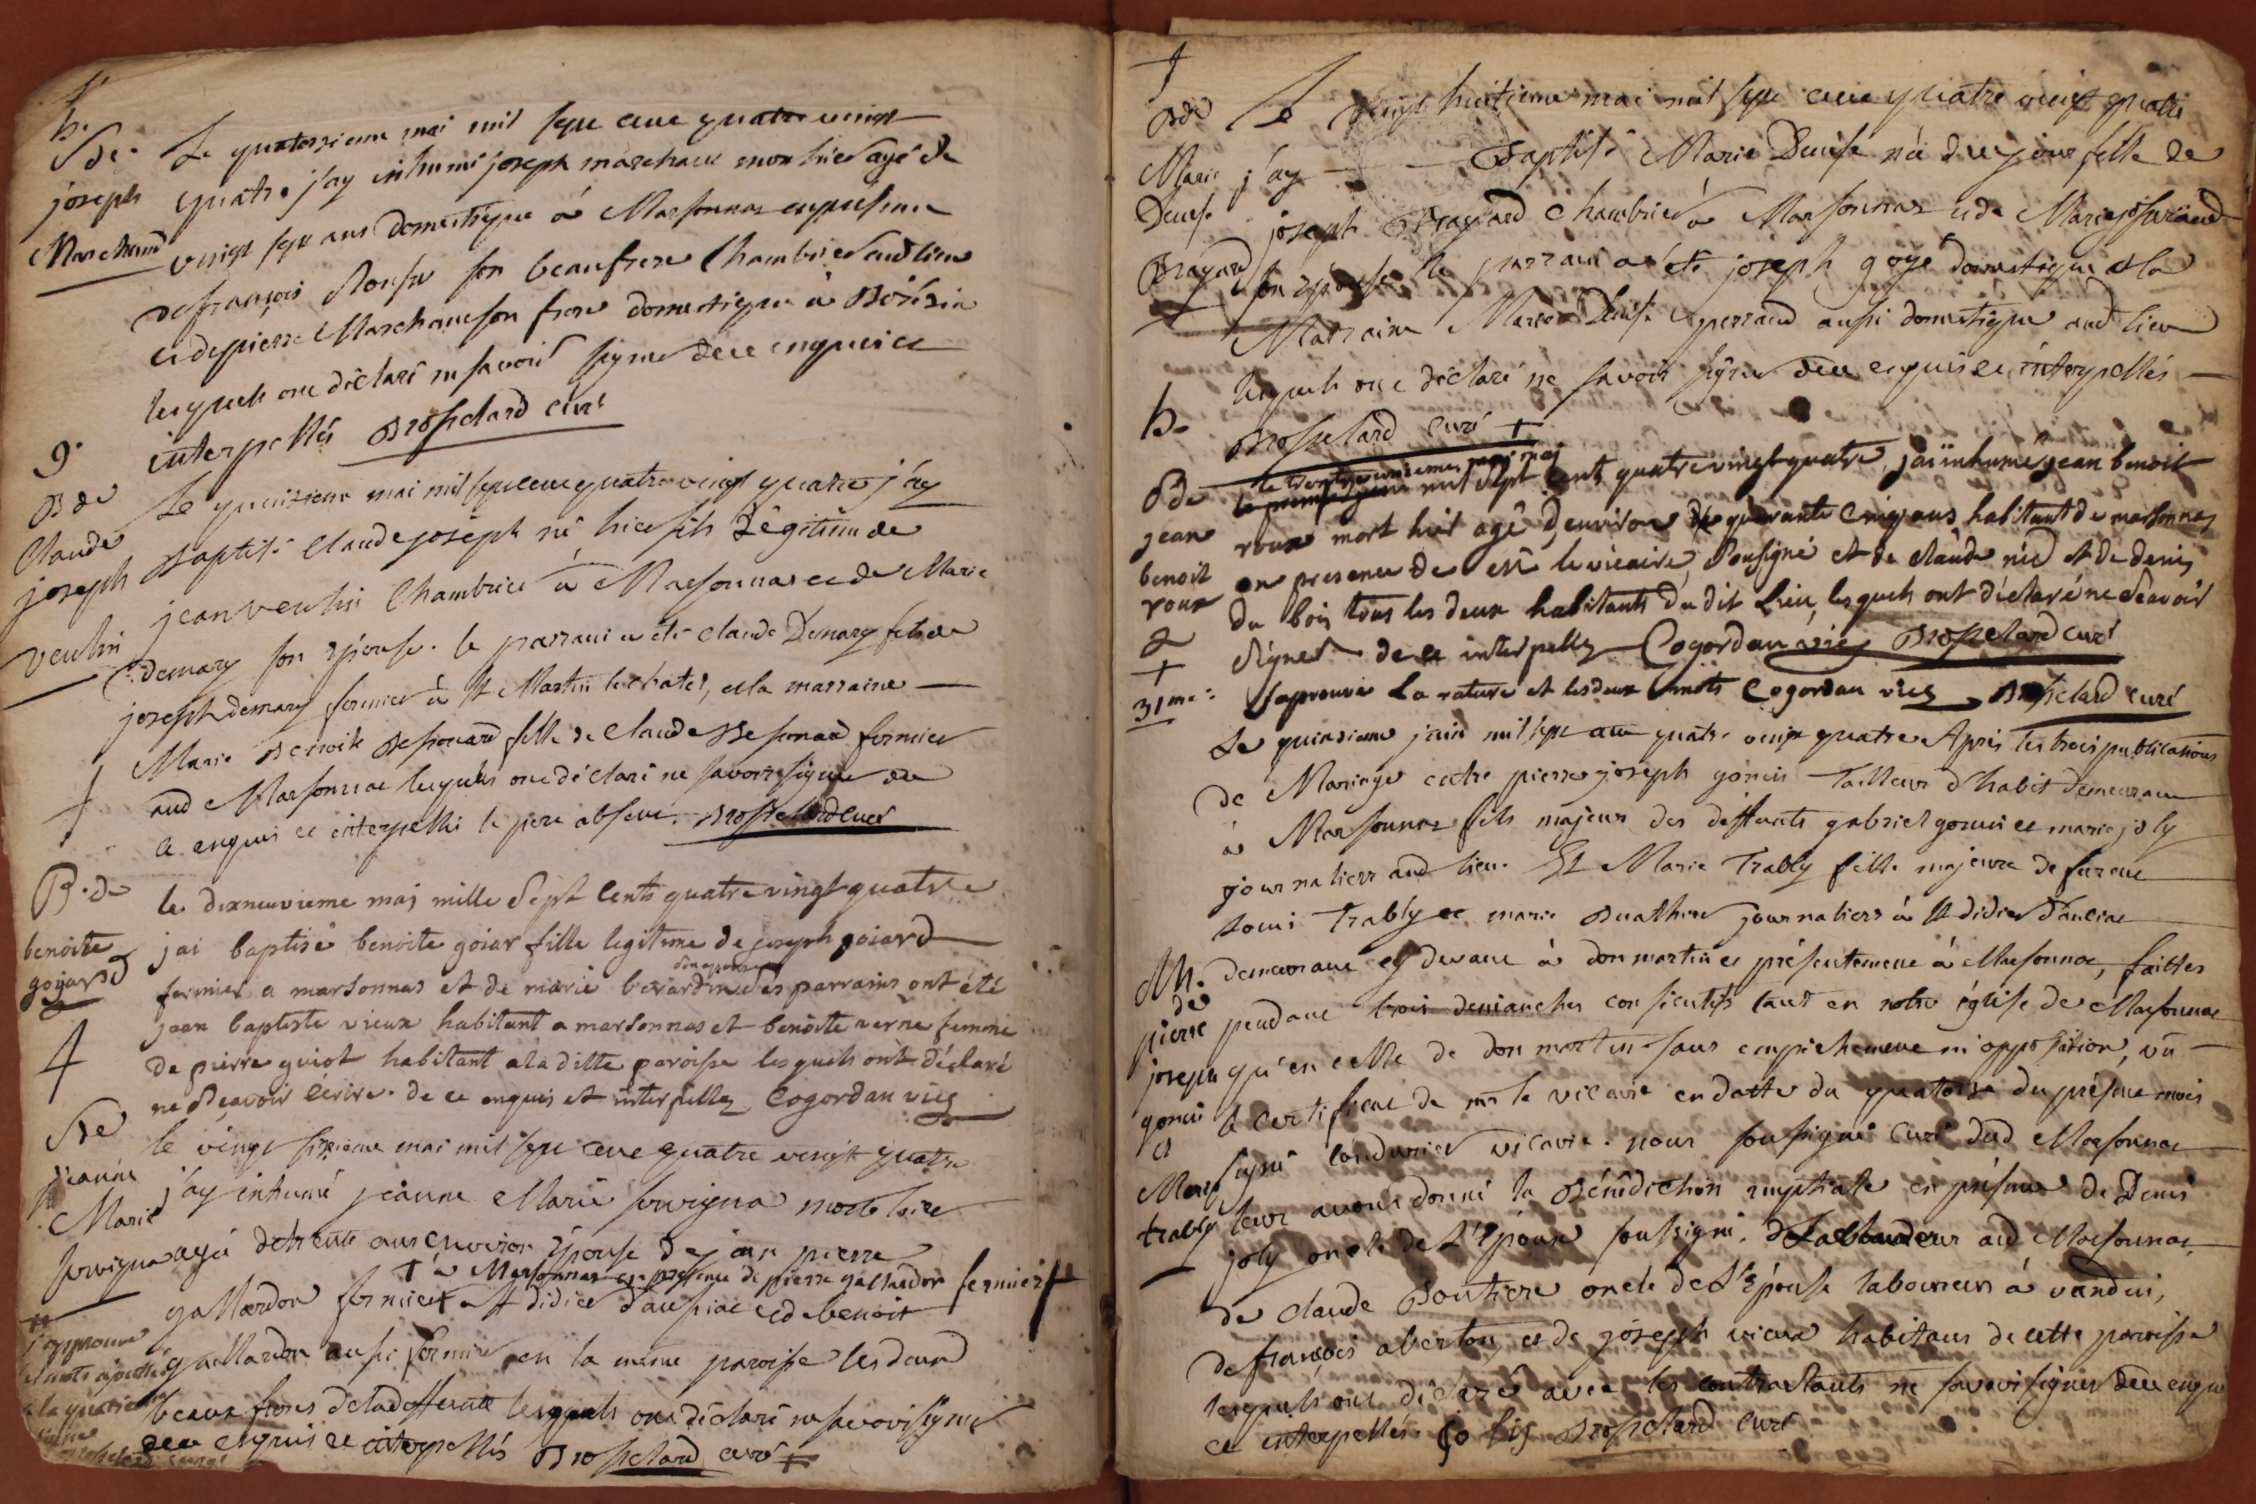 h.
S de
joseph
Marchand
Le quatorzieme mai mil sept cent quatre vingt
quatre j'ay inhumé joseph marchand mort hier agé de
vingt sept ans Domestique à Marsonnas en presence
de françois son beaufrere Chambrier aud lieu
et de pierre Marchand son frere domestique à
lesquels ont déclaré ne savoir signer de ce enquis et
interpellés Brosselard curé
9.
B de
Claude
joseph
veulin
Le quinzieme mai mil sept cent quatre vingt quatre j'ay
Baptisé Claude joseph né hier fils Légitime de
jean veulin Chambrier à Marsonnas et de Marie
demary son épouse. le parrain a été Claude Demary fils de
joseph demary fermier à St Martin lechatel, et la marraine
Marie Benoite fille de Claude fermier
aud Marsonnas lesquels ont déclaré ne savoir signer de
ce enquis et interpellés le pere absent. Brosselard curé
B. de
benoite
goyard
le dixneuvieme maj mille Sept Cents quatre vingt quatre
jai baptisé benoite goiar fille legitime de joseph goiard
fermier a marsonnas et de marie berardin son epouse Ses parrains ont été
jean baptiste vieux habitant a marsonnas et benoite verne femme
de pierre guiot habitant a la ditte paroisse lesquels ont déclaré
ne Sçavoir écrire. de ce enquis et interpellez Cogordan vic
S de
jeanne
Marie
servigna
le vingt sixieme mai mil sept cent quatre vingt quatre
j'ay inhumé jeanne Marie servigna morte hier
agée de trente ans environ épouse de jean pierre
+ à Marsonnas en presence de pierre gallardon fermier
gallardon fermier St didier d'aussiac et de benoit
gallardon aussi fermier en la même paroisse les deux
beaux freres de la deffunte lesquels ont déclaré ne savoir signer
de ce enquis et interpellés Brosselard curé
j'approuve
la quatrieme
ligne
Brosselard curé
B de
Marie
Denise
Brayard
Le vingt huitieme mai mil sept cent quatre vingt quatre
j'ay Baptisé Marie Denise née du jour fille de
joseph Brayard Chambrier à Marsonnas et de Marie
son épouse. le parrain a été joseph goyé domestique et la
Marraine Marie Denise perraud aussi domestique aud lieu
lesquels ont déclaré ne savoir signer de ce enquis et interpellés
Brosselard curé +
h.
S de
jean
benoit
roux
le trente unieme maj
mil Sept Cents quatre vingt quatre, jai inhumé jean benoit
roux mort hier agé D'environ quarante Cinq ans, habitant de marsonnas
en presence de le vicaire Soussigné et de claude et de denis
du bois tous les deux habitants du dit Lieu, lesquels ont déclaré ne Sçavoir
Signer de ce interpellez Cogordan vic Brosselard curé
31me:
J'approuve La rature et les deux mots Cogordan vic Brosselard curé
M.
de
pierre
joseph
gonin
et
Marie
trably
Le quinzieme juin mil sept cent quatre vingt quatre Après les trois publications
de Mariage entre pierre joseph gonin Tailleur d'habit demeurant
à Marsonnas fils majeur des deffunts gabriel gonin et marie joly
journaliers aud lieu. Et Marie Trably fille majeure de furent
Trably et marie journaliers à St didier d'aussiac
demeurant cy devant à donmartin et présentement à Marsonnas, faittes
pendant trois dimanches consécutifs tant en notre église de Marsonnas
qu'en celle de donmartin sans empêchement ni opposition, vû
le certificat de mr le vicaire en datte du quatorze du présent mois
signé vicaire. nous soussigné curé dud Marsonnas
leur avons donné la Bénédiction nuptiale en présence de Denis
joly oncle de L'époux soussigné. Laboureur aud Marsonnas,
de claude oncle de l'épouse laboureur à
de françois et de joseph vieux habitans de cette paroisse
lesquels ont déclaré avec les contractants ne savoir signer de ce enquis
et interpellés. Brosselard curé